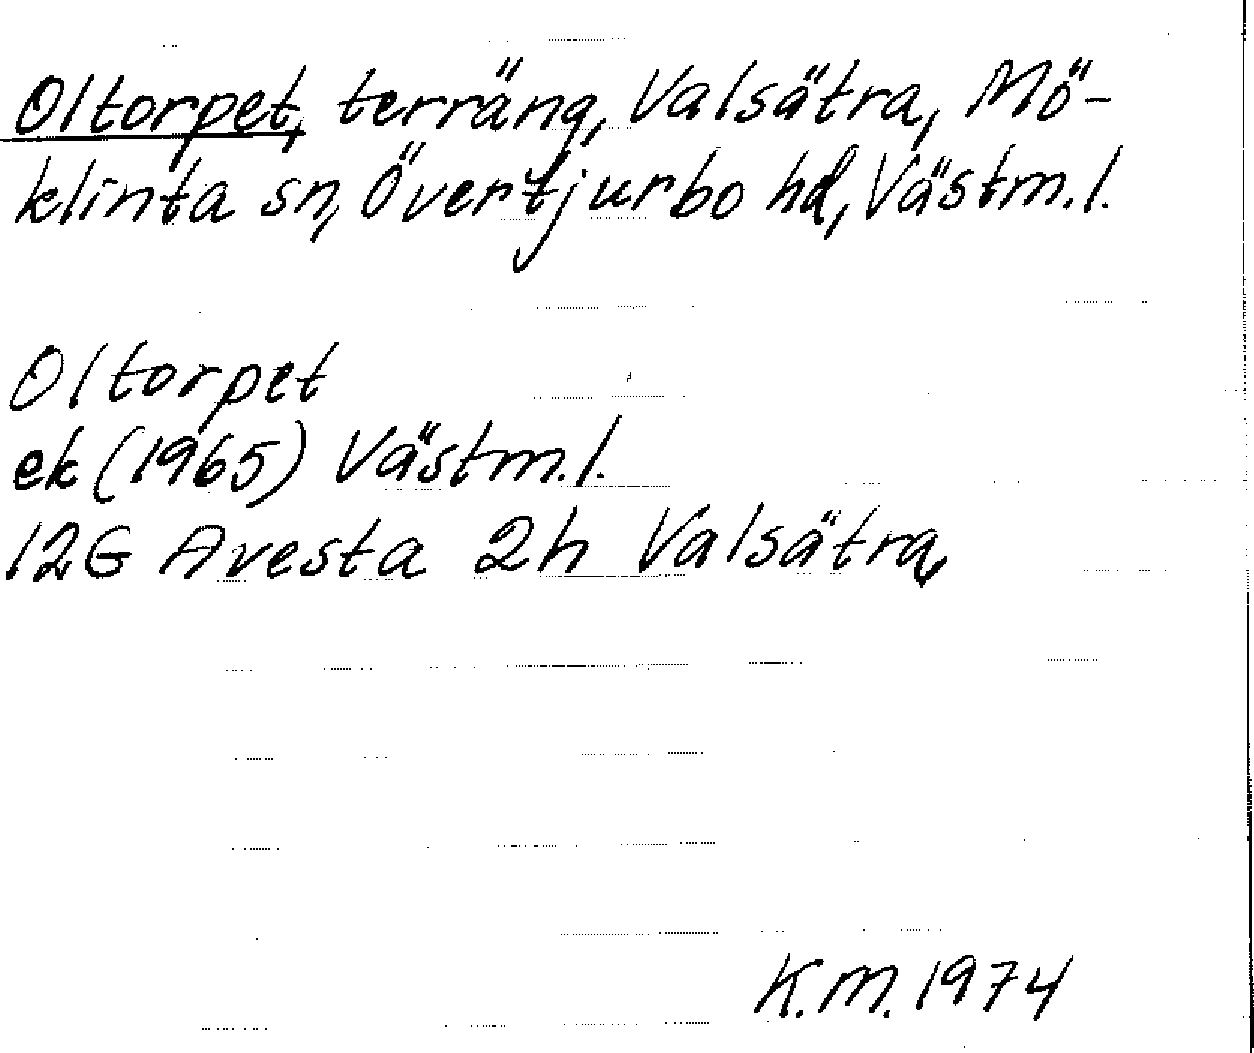 Oltorpet, terräng, Valsätra, Mö-
klinta sn, Övertjurbo hd, Västm.l.
Oltorpet
ek (1965) Västm.l.
12G Avesta 2h Valsätra,
K.M. 1974